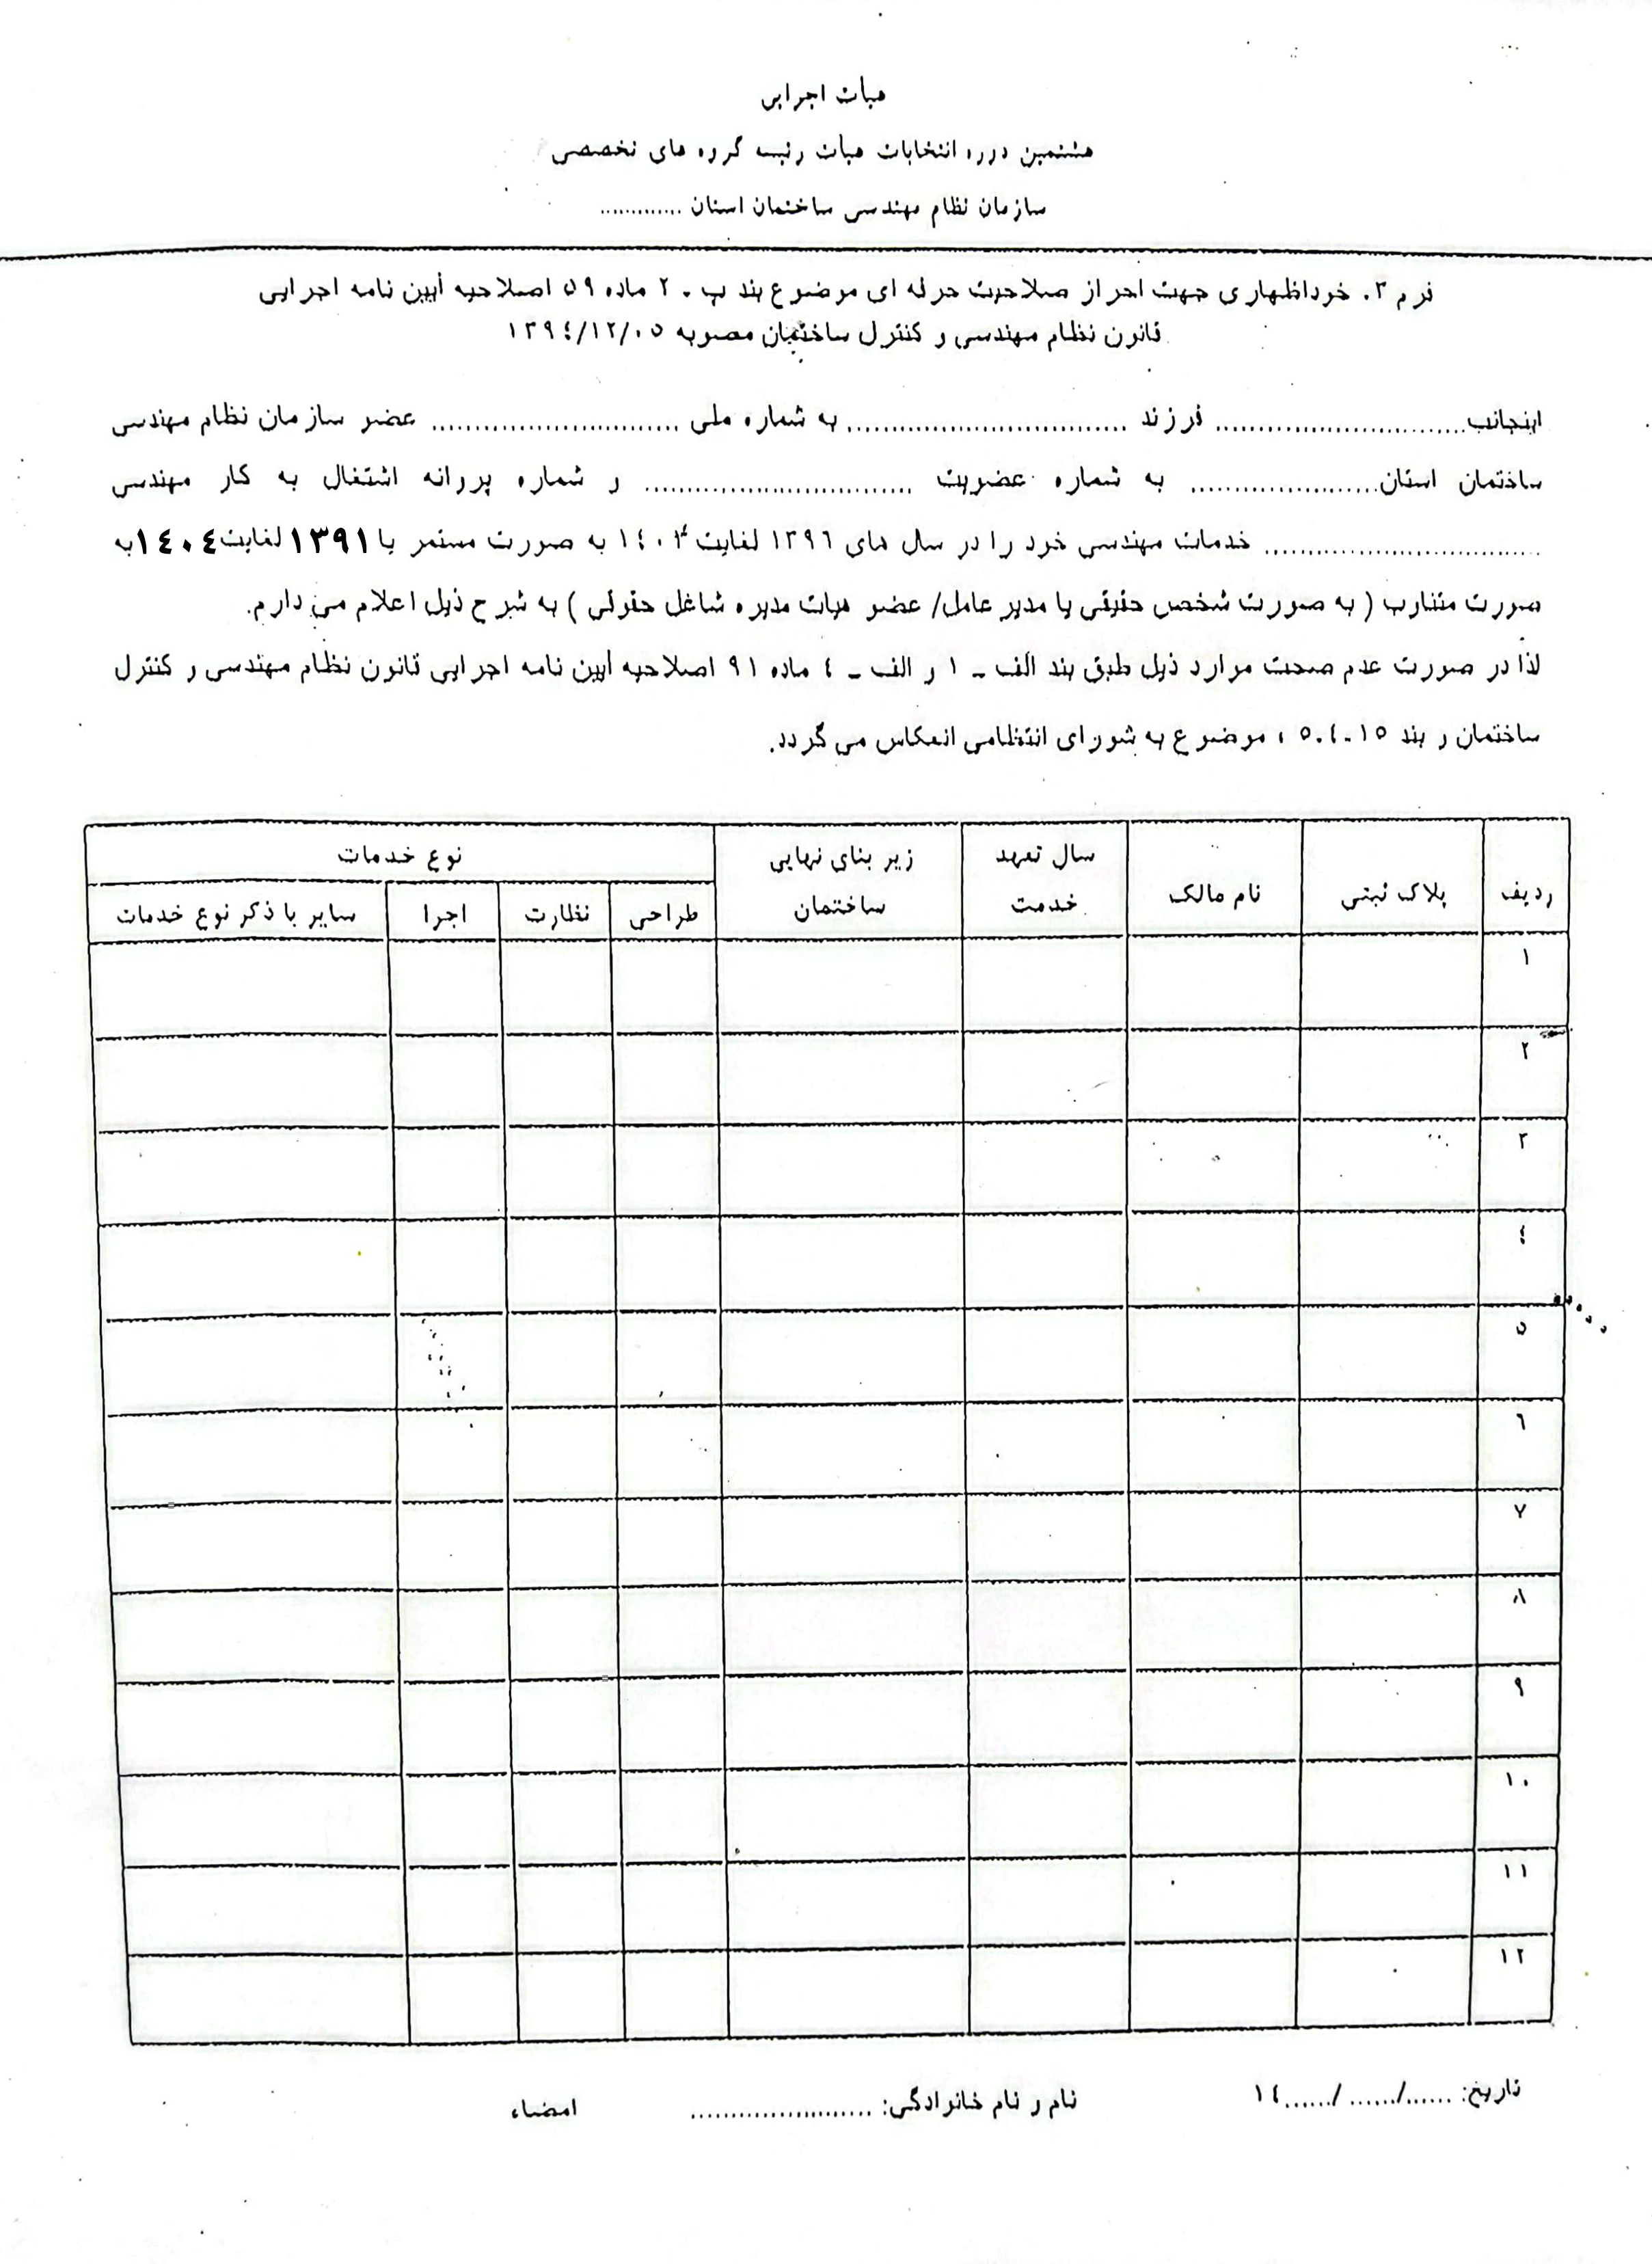 هیأت اجرایی
هشتمین دوره انتخابات هیأت رئیسه گروه های تخصصی
سازمان نظام مهندسی ساختمان استان ............
فرم ۳. خوداظهاری جهت احراز صلاحیت حرفه ای موضوع بند ب - ۲ ماده ۵۹ اصلاحیه آیین نامه اجرایی
قانون نظام مهندسی و کنترل ساختمان مصوبه ۱۳۹٤/۱۲/۰۵
اینجانب.............................. فرزند .................................به شماره ملی .............................. عضو سازمان نظام مهندسی
ساختمان استان...................... به شماره عضویت ................................ و شماره پروانه اشتغال به کار مهندسی
................................. خدمات مهندسی خود را در سال های ۱۳۹٦ لغایت ۱٤۰۴ به صورت مستمر یا ۱۳۹۱ لغایت ۱٤۰٤ به
صورت متناوب ( به صورت شخص حقیقی یا مدیر عامل/ عضو هیات مدیره شاغل حقوقی ) به شرح ذیل اعلام می دارم.
لذا در صورت عدم صحت موارد ذیل طبق بند الف - ۱ و الف - ٤ ماده ۹۱ اصلاحیه آیین نامه اجرایی قانون نظام مهندسی و کنترل
ساختمان و بند ۱۵-٤-۵ ، موضوع به شورای انتظامی انعکاس می گردد.
ردیف پلاک ثبتی نام مالک سال تعهد زیر بنای نهایی نوع خدمات
خدمت ساختمان طراحی نظارت اجرا سایر با ذکر نوع خدمات
۱
۲
۳
٤
۵
٦
۷
۸
۹
۱۰
۱۱
۱۲
تاریخ: ....../....../......۱٤ نام و نام خانوادگی: ....................... امضاء